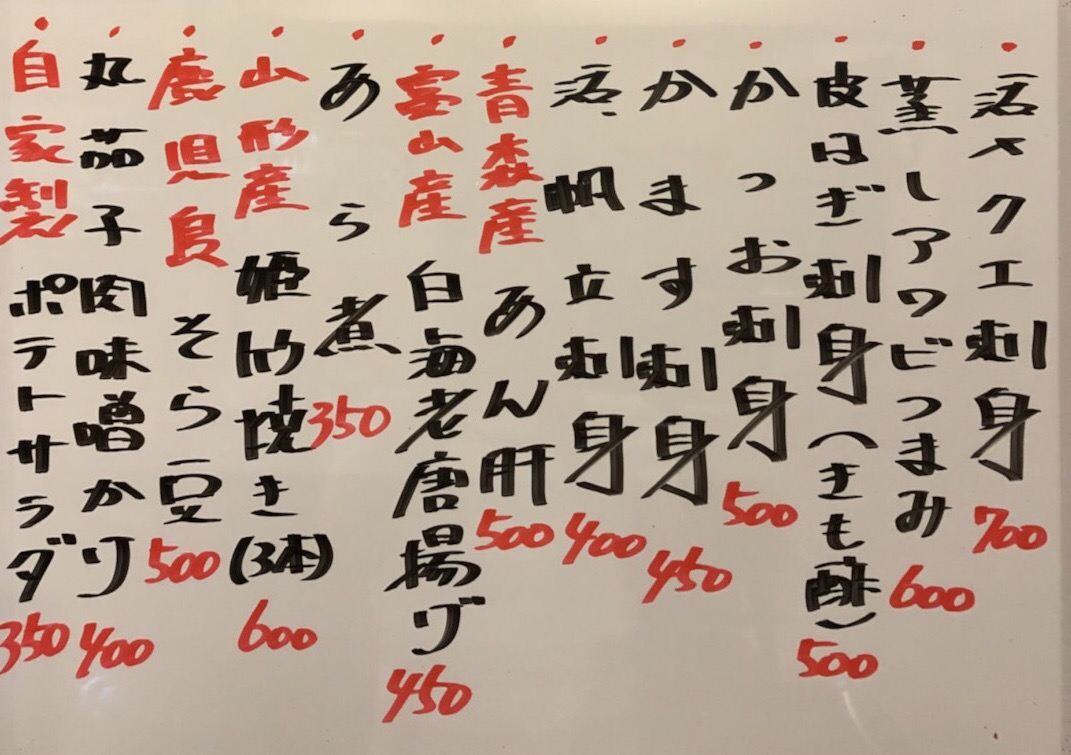 ・活〆クエ刺身 700
・蒸しアワビつまみ 600
・皮はぎ刺身(きも酢) 500
・かつお刺身 500
・かます刺身 450
・活帆立刺身 400
・青森産あん肝 500
・富山産白海老唐揚げ 450
・あら煮 350
・山形産姫竹焼き(3本) 600
・鹿児島そら豆 500
・丸茄子肉味噌かけ 400
・自家製ポテトサラダ 350